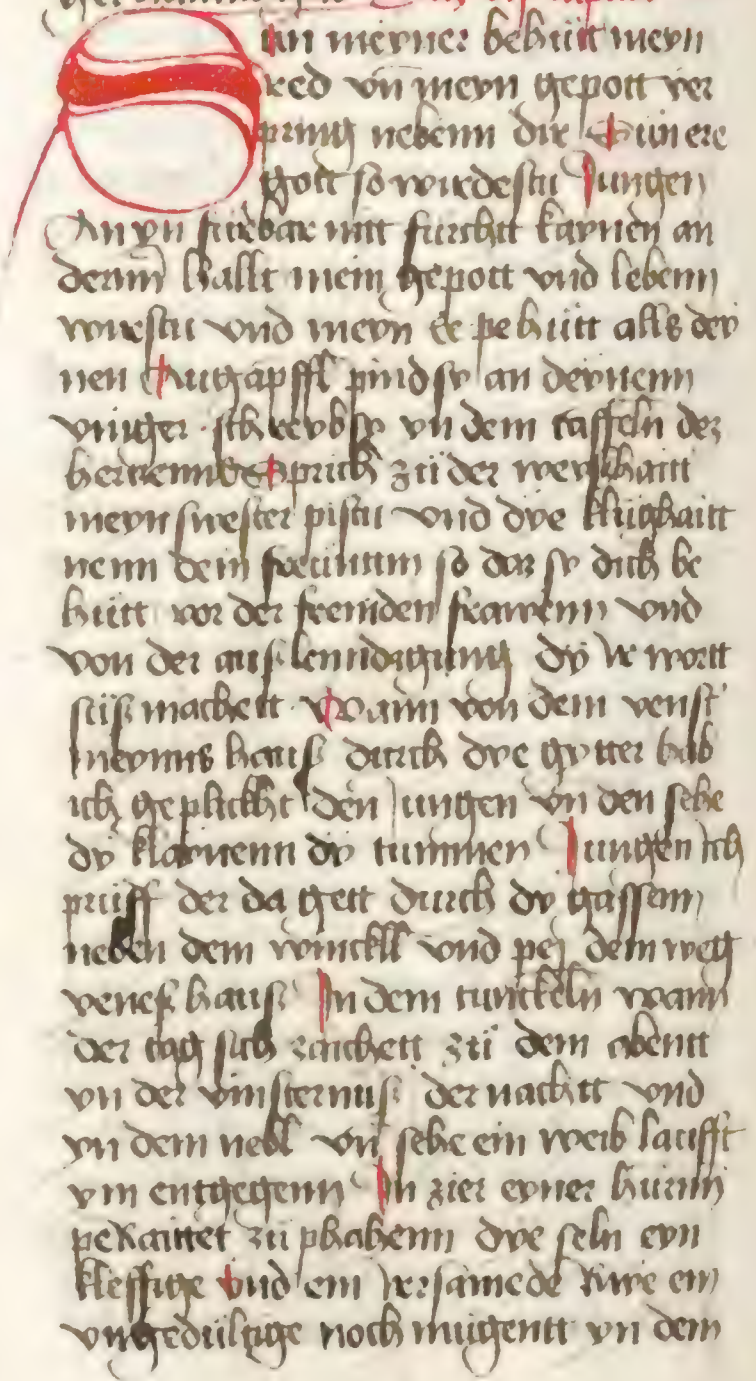 Sun meyner behütt meyn
red vn̄ meyn gepott ver
pring nebenn dir Sun ere
gott so wirdestu Jungen
An yn furbar nitt furchtt kaynen an
dernn hallt mein gepott vnd lebenn
wirstu vnd meyn ee pehütt alls dey
nen Augapffl pind sy an deynenn
vinger schreyb sy yn dem taffeln dez
herczenns Sprich zü der weyshaitt
meyn swester pistu vnd dye klüghaitt
nenn dein freuntinn so daz sy dich be
hütt vor der fremden frawenn vnd
von der auslenndigung dy Ire wortt
süß machett Wann von dem venst'
meynns hauß durch dye gytter hab
ich geplickht den Jungen vn̄ den sehe
dy klaynenn dy tummen Jungen ich
prüff der da gett durch dy gassenn
neben dem winckll vnd pej dem weg
yenes hauß In dem tunckeln wann
der tag sich zaichett zü dem abentt
yn der vinsternuß der nachtt vnd
yn dem nebl vn̄ sehe ein weib laufft
ym entgegenn In zier eyner hurnn
peraittet zü phahenn dye seln eyn
kleffige vnd ein ein
vngedültige noch mügentt yn dem